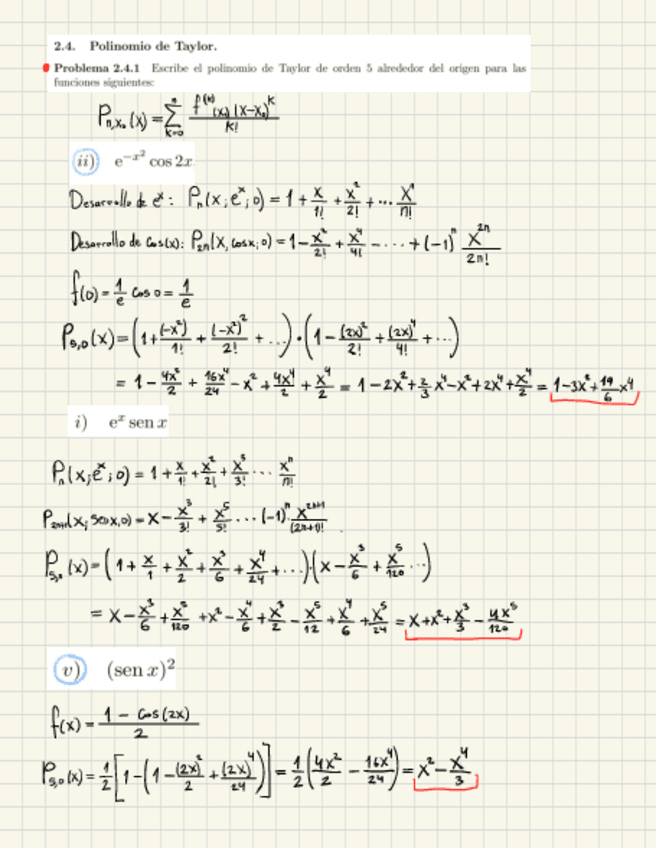 2.4. Polinomio de Taylor.
Problema 2.4.1 Escribe el polinomio de Taylor de orden 5 alrededor del origen para las
funciones siguientes:
P_{n,x₀}(x) = Σ_{k=0}^{n} f^{(k)}(x₀)(x-x₀)^k / k!
ii) e^{-x²} cos 2x
Desarrollo de e^x: P_n(x; e^x; 0) = 1 + x/1! + x²/2! + ... x^n/n!
Desarrollo de cos(x): P_{2n}(x, cosx; 0) = 1 - x²/2! + x⁴/4! - ... + (-1)^n x^{2n}/2n!
f(0) = 1/e cos 0 = 1/e
P_{5,0}(x) = (1 + (-x²)/1! + (-x²)²/2! + ...)·(1 - (2x)²/2! + (2x)⁴/4! + ...)
= 1 - 4x²/2 + 16x⁴/24 - x² + 4x⁴/2 + x⁴/2 = 1 - 2x² + 2/3 x⁴ - x² + 2x⁴ + x⁴/2 = 1 - 3x² + 19/6 x⁴
i) e^x sen x
P_n(x; e^x; 0) = 1 + x/1! + x²/2! + x³/3! ... x^n/n!
P_{2n+1}(x; senx, 0) = x - x³/3! + x⁵/5! ... (-1)^n · x^{2n+1}/(2n+1)!
P_{5,0}(x) = (1 + x/1 + x²/2 + x³/6 + x⁴/24 + ...)·(x - x³/6 + x⁵/120 ...)
= x - x³/6 + x⁵/120 + x² - x⁴/6 + x³/2 - x⁵/12 + x⁴/6 + x⁵/24 = x + x² + x³/3 - 4x⁵/120
v) (sen x)²
f(x) = 1 - cos(2x) / 2
P_{5,0}(x) = 1/2 [1 - (1 - (2x)²/2 + (2x)⁴/24)] = 1/2 (4x²/2 - 16x⁴/24) = x² - x⁴/3